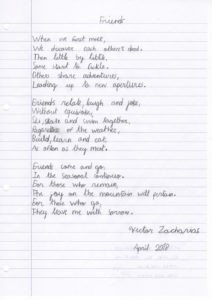 Friends
When we first meet,
We discover each other's
Then little by little,
Some start to
Others share adventures,
Leading up to new
Friends relate, laugh and joke,
Without
skate and swim together,
Regardless of the weather,
Build, learn and eat
As often as they meet.
Friends come and go,
In the seasonal
For those who remain,
The joy on the mountain will
For those who go,
They leave me with sorrow.
Victor Zacharias
April